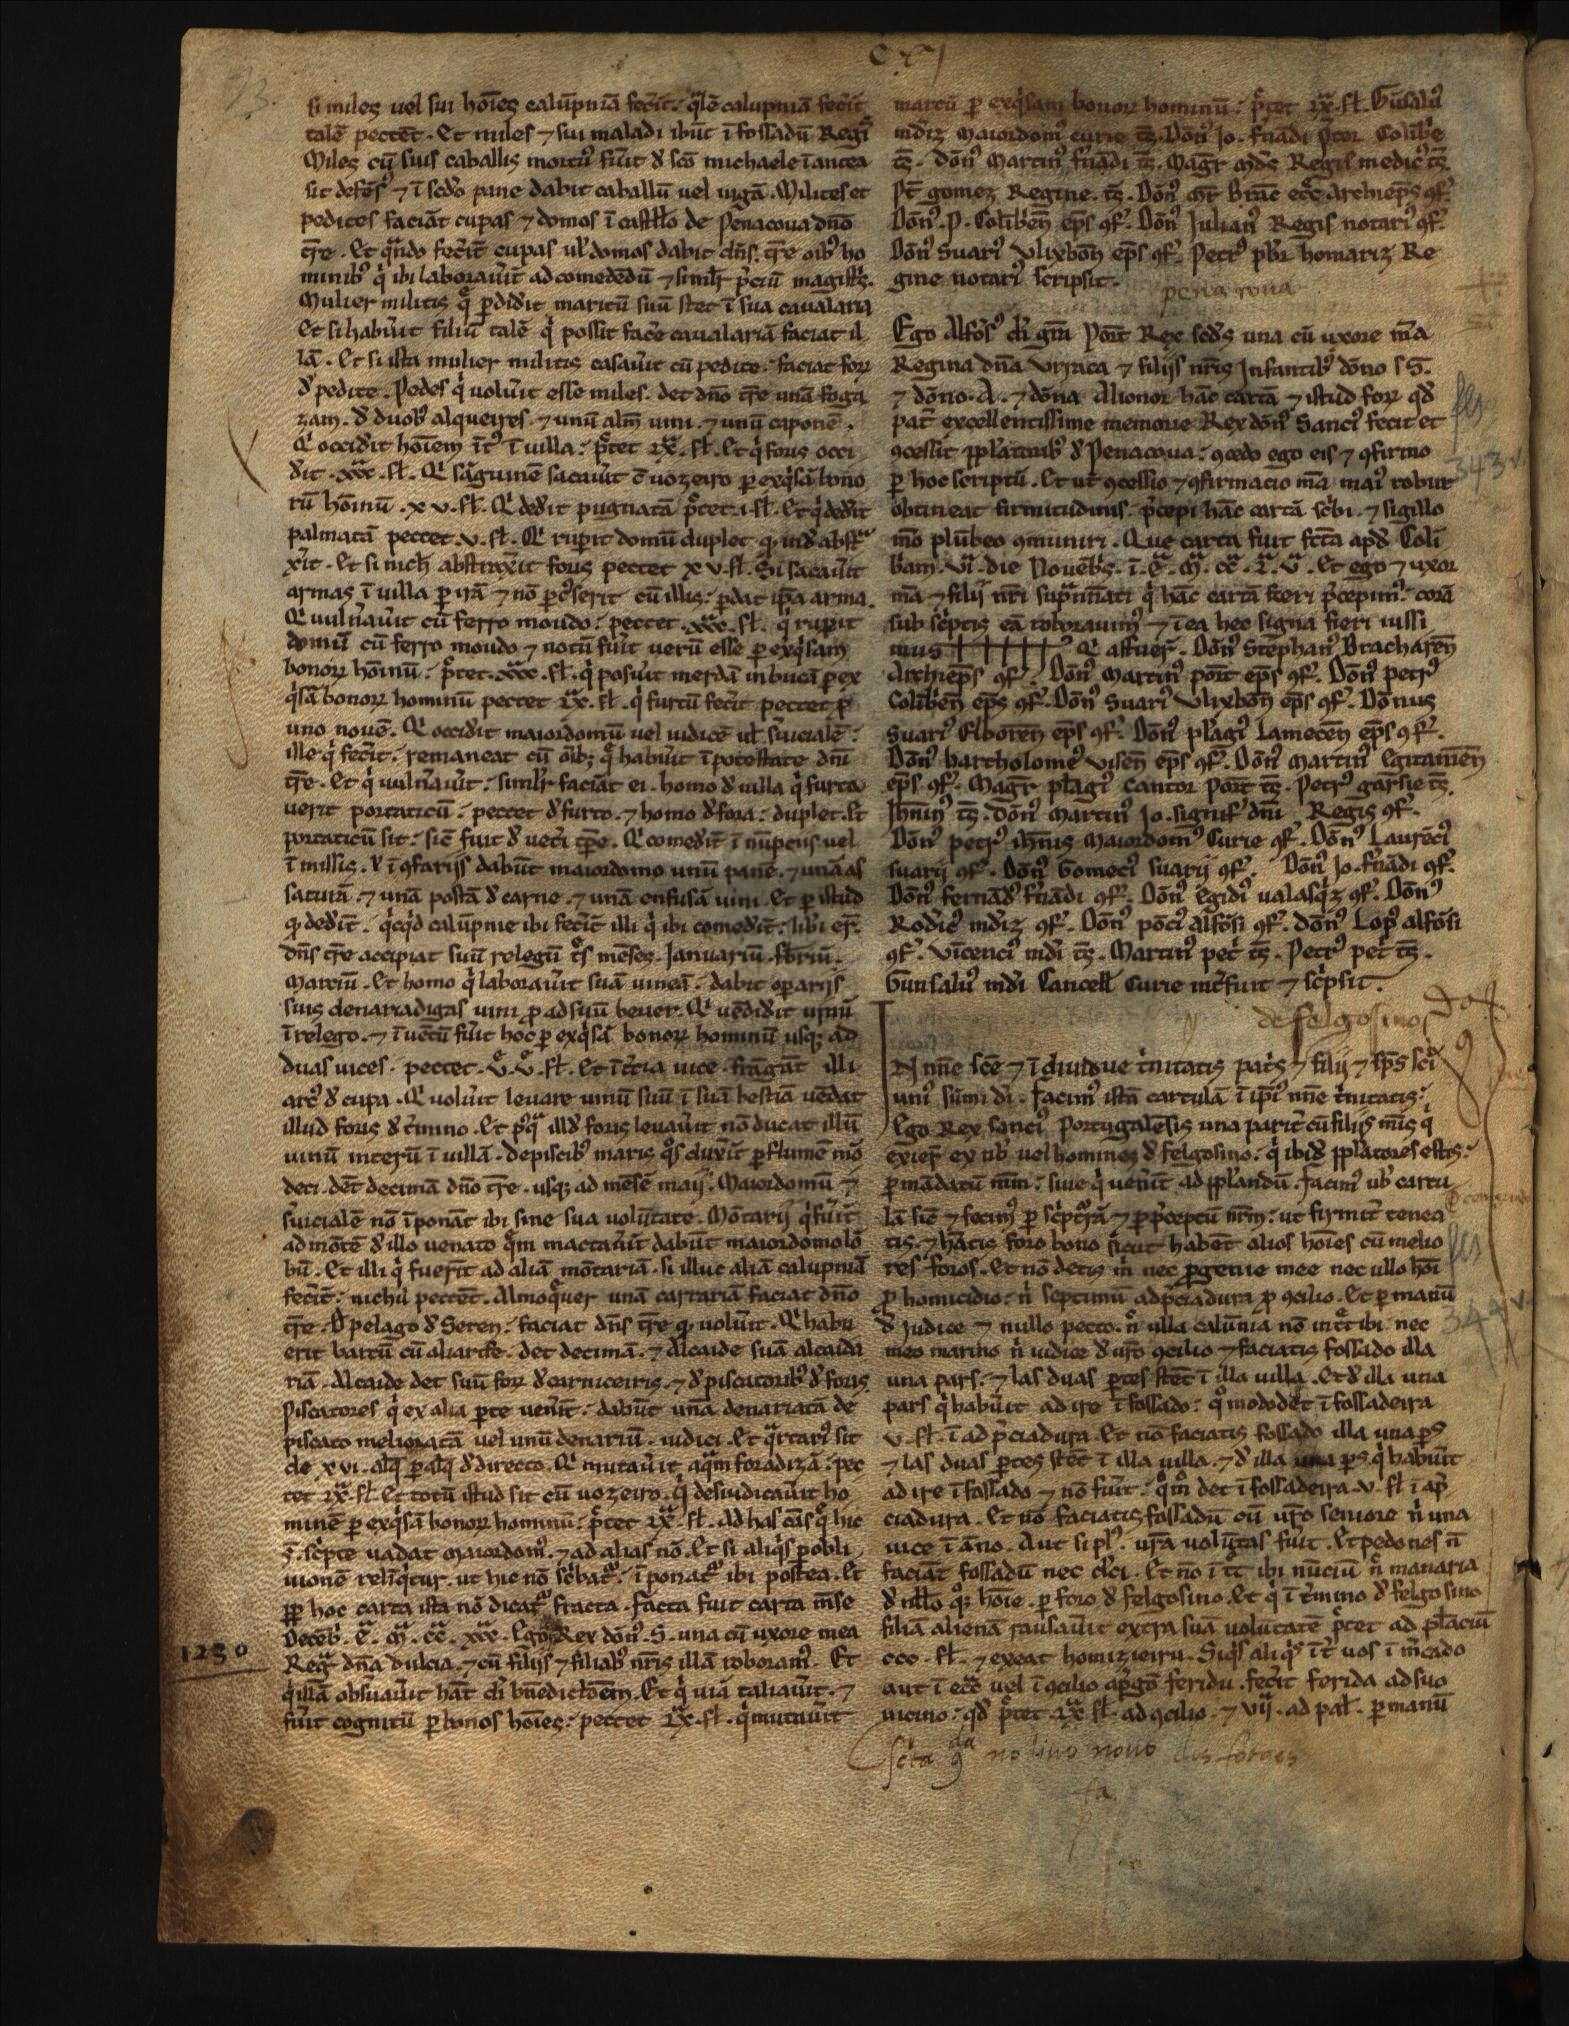 si miles uel sui hoīes calūpniā fecit̄. q̄lē calupniā fecit̄
talē pectēt. Et miles ⁊ sui maladi ibūt ī fossadū Regꝭ
Miles cū suis caballis mortuꝰ fūit d̄ sc̄o michaele ī antea
sit defēsꝰ ⁊ ī scdo
Milites et
pedites faciāt cupas ⁊ domos ī castello de Penacoua dn̄o
tr̄e. Et qn̄do fecit̄ cupas ul̓ domos dabit dn̄s tr̄e oibꝰ ho
minibꝰ q̇ ibi laborauīt ad comedēdū ⁊ simlr̄ p̄ciū magist̄s.
Mulier militis q̄ ꝑdidit maritū suū stet ī sua caualaria
Et si habuīt filiū talē q̇ possit facē caualariā faciat il
lā. Et si ista mulier militis casauīt cū pedite. faciat foꝝ
d̄ pedite. Pedes q̇ uoluīt esse miles. det dn̄o tr̄e unā foga
zam. d̄ duobꝰ alqueires. ⁊ unū alm̄ uini. ⁊ unū caponē.
Q̇ occidit hoīem īt̄ ī uilla. p̄tet lx. sł. Et q̇ foris occi
dit. xxx. sł. Q̇ sāguinē sacauīt ē uozeiro ꝑ exq̇sā bono
rū hōinū. x v. sł. Q̇ dedit pugnatā p̄tet. i. sł. Et q̇ dedit
palmatā pectet v. sł. Q̇ rupit domū duplet qͥ ind̄ abst̄
xit. Et si nich̄ abstraxīt foris pectet x v. sł. Si sacauīt
armas ī uilla ꝑ irā ⁊ nō ꝑc̄serit cū illis. ꝑdat ip̄a arma.
Q̇ uuln̄auīt cū ferro moudo. pectet. xxx. sł. q̇ rupit
domū cū ferro moudo ⁊ notū fūit uerū esse ꝑ exq̇sam
bonoꝝ hōinū. p̄tet. xxx. sł. q̇ posuīt merdā in bucā ꝑ ex
q̇sā bonoꝝ hominū pectet lx. sł. q̇ furtū fecit pectet ꝑ
uno nouē. Q̇ occidit maiordomū uel iudicē ul̓ s̄uicialē.
ille q̇ fecit. remaneat cū oībꝫ q̄ habuīt ī potestate dn̄i
tr̄e. Et q̇ uuln̄auīt. simlr̄ faciāt ei. homo d̄ uilla q̇ furta
uerit portaticū. pectet d̄ furto. ⁊ homo d̄ fora. duplet. Et
portaticū sit. sic̄ fuit d̄ uet̄i tp̄e. Q̇ comedīt ī nūpciis uel
dabūt maiordomo unū panē. ⁊ unā as
saturā. ⁊ unā postā d̄ carne. ⁊ unā enfusā uini. Et ꝑ istud
q̄ dedīt. q̇cq̇d calūpnie ibi fecīt illi q̇ ibi comedīt. lib̄i er̄.
dn̄s tr̄e accipiat suū relegū t̄s mēses. Januariū. febriū.
Marciū. Et homo q̇ laborauīt suā uineā. dabit opariis
suis denarradigas uini ꝑ ad suū beuer. Q̇ uēdidit uinū
ī relego. ⁊ īuētū fūit hoc ꝑ exq̇sā bonoꝝ hominū usqꝫ ad
duas uices. pectet. v. v. sł. Et ī t̄cia uice. frāgāt illi
arcꝰ d̄ cupa. Q̇ uolūit leuare uinū suū ī suā bestiā uēdat
illud foris d̄ t̄mino. Et pꝰq̄ illd̄ foris leuauīt nō ducat illū
uinū iterū ī uillā. De piscibꝰ maris q̄s duxīt ꝑ flumē mō
deci. dēt decimā dn̄o tr̄e. usqꝫ ad mēsē maij. Maiordomū ⁊
s̄uicialē nō īponāt ibi sine sua uolūtate. Mōtarij q̇ fuīt
ad mōtē d̄ illo uenato q̄m mactauīt dabūt maiordomo lō
bū. Et illi q̇ fuerīt ad aliā mōtariā. si illuc aliā calupniā
fecīt. nichil pectēt. Almoq̄uer unā carrariā faciat dn̄o
tr̄e. D̄ pelago d̄ Seren. faciat dn̄s tr̄e q̄ uolūit. Q̇ habu
erit barcū cū aliarde. det decimā. ⁊ Alcaide suā alcaida
riā. Alcaide det suū foꝝ d̄ carniceiris. ⁊ d̄ piscatoribꝰ d̄ foris
Piscatores q̇ ex alia ꝑte uenīt. dabūt unā denariatā de
piscato melioratā uel unū denariū. iudici. Et q̄rtariꝰ sit
de xvi. alq̄ ꝑ alq̄ d̄ directo. Q̇ mutauīt aq̄m foradizā. pec
tet lx. sł. Et totū istud sit cū uozeiro. q̇ desiudicauīt ho
minē ꝑ exq̇sā bonoꝝ hominū. p̄tet lx. sł. Ad has cās q̄ hic
s̄ sc̄pte uadat maiordomꝰ. ⁊ ad alias nō. Et si aliq̇s ꝑ obli
uionē reliq̄tur. ut hic nō sc̄bat̄. īponat̄ ibi postea. Et
ꝓꝑ hoc carta ista nō dicat̄ fracta. facta fuit carta mēse
Decēb̄. E. M. CC. XXX. Ego Rex dōnꝰ. S. una cū uxore mea
1230
Reg̅ dn̄a dulcia. ⁊ cū filijs ⁊ filiabꝰ nr̄is illā roboramꝰ. Et
q̇ illā obs̄uauīt hāt di bn̄edictōem. Et q̇ uiā taliauīt. ⁊
fūit cognitū ꝑ bonos hoīes. pectet lx. sł. q̇ mutauīt
marcū ꝑ exq̇sam bonoꝝ hominū. p̄tet lx. sł. Gūsaluꝰ
mdiz Maiordomꝰ curie ts̄. Dōnꝰ Jo. fn̄ādi p̄tor Colib̄e
ts̄. dōnꝰ Martinꝰ fn̄ādi ts̄. Magr̄ mds̄ Regis medicꝰ ts̄.
Pt̄ gomez Regine. ts̄. Dōnꝰ Mt̄ Brac̄ ecc̄ Archiep̄s ꝯf̄.
Dōnꝰ. P. Colib̄ien̄ ep̄s ꝯf̄. Dōnꝰ Julianꝰ Regis notariꝰ ꝯf̄.
Dōnꝰ Suariꝰ Vlixbon̄ ep̄s ꝯf̄. Petrꝰ pbr̄ homariz Re
gine notariꝰ scripsit.
pena coua
Ego Alfōsꝰ di gr̄a Port̄ Rex scd̄s una cū uxore m̄a
Regina dn̄a Vrraca ⁊ filijs nr̄is Jnfantibꝰ dōno S.
⁊ dōno. A. ⁊ dōna Alionor hāc cartā ⁊ istud foꝝ qd̄
pat̄ excellentissime memorie Rex dōnꝰ Sanciꝰ fecit et
ꝯcessit pp̄latoribꝰ d̄ Penacoua. ꝯcedo ego eis ⁊ ꝯfirmo
ꝑ hoc scriptū. Et ut ꝯcessio ⁊ ꝯfirmacio m̄a maiꝰ robur
obtineat firmitudinis. p̄cepi hāc cartā sc̄bi. ⁊ sigillo
mō plūbeo ꝯmuniri. Que carta fuit fc̄ta apd̄ Coli
b̄am. VI. die Nouēb̄s. ī. E. M. CC. L. V. Et ego ⁊ uxor
m̄a ⁊ filij nr̄i sup̄nn̄ati q̇ hāc cartā fieri p̄cepimꝰ. corā
sub sc̄ptis eā roborauimꝰ ⁊ ī ea hec signa fieri iussi
mus. ┼┼┼┼┼ Q̇ affuer̄. Dōnꝰ Stephanꝰ Bracharen̄
Archiep̄s ꝯf̄. Dōnꝰ Martinꝰ port̄ ep̄s ꝯf̄. Dōnꝰ petrꝰ
Colib̄ien̄ ep̄s ꝯf̄. Dōnꝰ Suariꝰ Vlixbon̄ ep̄s ꝯf̄. Dōnus
Suariꝰ Elboren̄ ep̄s ꝯf̄. Dōnꝰ p̄lagiꝰ Lamecen̄ ep̄s ꝯf̄.
Dōnꝰ bartholomeꝰ Visen̄ ep̄s ꝯf̄. Dōnꝰ Martinꝰ Egitanien̄
ep̄s ꝯf̄. Magr̄ p̄lagiꝰ Cantor Port̄ ts̄. Petrꝰ garsie ts̄.
Dōnꝰ petrꝰ ihn̄is Maiordomꝰ Curie ꝯf̄. Dōnꝰ Laurēciꝰ
suarij ꝯf̄. Dōnꝰ Gomeciꝰ suarij ꝯf̄. Dōnꝰ Jo. fn̄ādi ꝯf̄.
Dōnꝰ fernādꝰ fn̄ādi ꝯf̄. Dōnꝰ Egidiꝰ ualasq̇z ꝯf̄. Dōnꝰ
Rodicꝰ mdiz ꝯf̄. Dōnꝰ pōciꝰ Alfōsi ꝯf̄. dōnꝰ Lopꝰ alfōsi
ꝯf̄. Vīcenciꝰ mdi ts̄. Martinꝰ pet̄ ts̄. Petrꝰ pet̄ ts̄.
Gunsaluꝰ mdi Cancell̄ Curie īt̄fuit ⁊ sc̄psit.
de felgosino
IN nn̄e sc̄e ⁊ īdiuidue t̄nitatis pat̄s ⁊ filij ⁊ sp̄s sc̄i
uniꝰ sūmi di. facimꝰ istā cartulā ī ip̄iꝰ nn̄e t̄nitatis.
Ego Rex sanciꝰ Portugalēsis una parit̄ cū filijs meis q̇
exier̄ ex ub̄ uel homines d̄ felgosino. q̇ ibid̄ pp̄latores estis.
ꝑ mādatū m̄m. siue q̇ uenīt ad pp̄landū. facimꝰ ub̄ cartu
lā sic̄ ⁊ fecimꝰ ꝑ sc̄pt̄rā ⁊ ꝑ p̄ceptū nr̄m. ut firmit̄ tenea
tis. ⁊ hātis foro bono sicut habēt alios hoīes cū melio
res foros. Et nō detis m̄ nec ꝓgenie mee nec ullo hoī
ꝑ homicidio. n̄ septimū ad p̄ciadura ꝑ ꝯcilio. Et ꝑ manū
d̄ Judice ⁊ nullo pecto. n̄ ulla calūnia nō īt̄t ibi nec
meo marino n̄ iudice d̄ ur̄o ꝯcilio ⁊ faciatis fossado illa
una pars. ⁊ las duas ꝑtes stēt ī illa uilla. Et d̄ illa una
pars q̇ habuīt ad ire ī fossado. q̄ modo det ī fossadeira
v. sł. ī ad p̄ciadura. Et nō faciatis fossado illa una ꝑs
⁊ las duas ꝑtes stēt ī illa uilla. ⁊ d̄ illa una ꝑs q̇ habuīt
ad ire ī fossado ⁊ nō fuīt. q̄m̄ det ī fossadeira v. sł ī ap̄
ciadura. Et nō faciatis fossadū cū ur̄o seniore n̄ una
uice ī āno. Aut si plꝰ. ur̄a uolūtas fūit. Et pedones n̄
faciāt fossadū nec cl̄ici. Et nō īt̄t ibi nūciū n̄ manaria
d̄ nullo qꝫ hōie. ꝑ foro d̄ felgosino. Et q̇ ī t̄mino d̄ felgosino
filiā alienā rausauīt extra suā uolūtatē p̄tet ad palaciū
ccc. sł. ⁊ exeat homizieiru. Siq̇s aliq̇s īt̄ uos ī m̄cado
aut ī ecc̄a uel ī ꝯcilio ap̄gon̄ feridu. fecit ferida ad suo
uicino. qd̄ p̄tet lx sł. ad ꝯcilio. ⁊ vij. ad pal̄. ꝑ manū
no liuro nouo
343 v.
344 v.